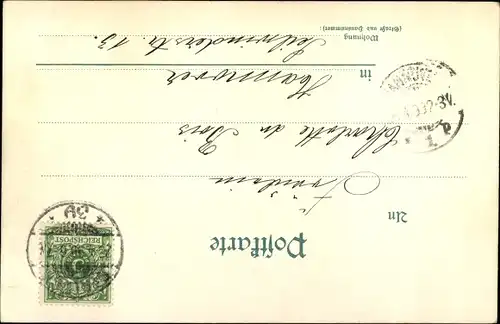 Postkarte
An
Fräulein
Charlotte du Bois
in Hannover
Wohnung
(Straße und Hausnummer)
Seilwinderstr. 13.
REICHSPOST